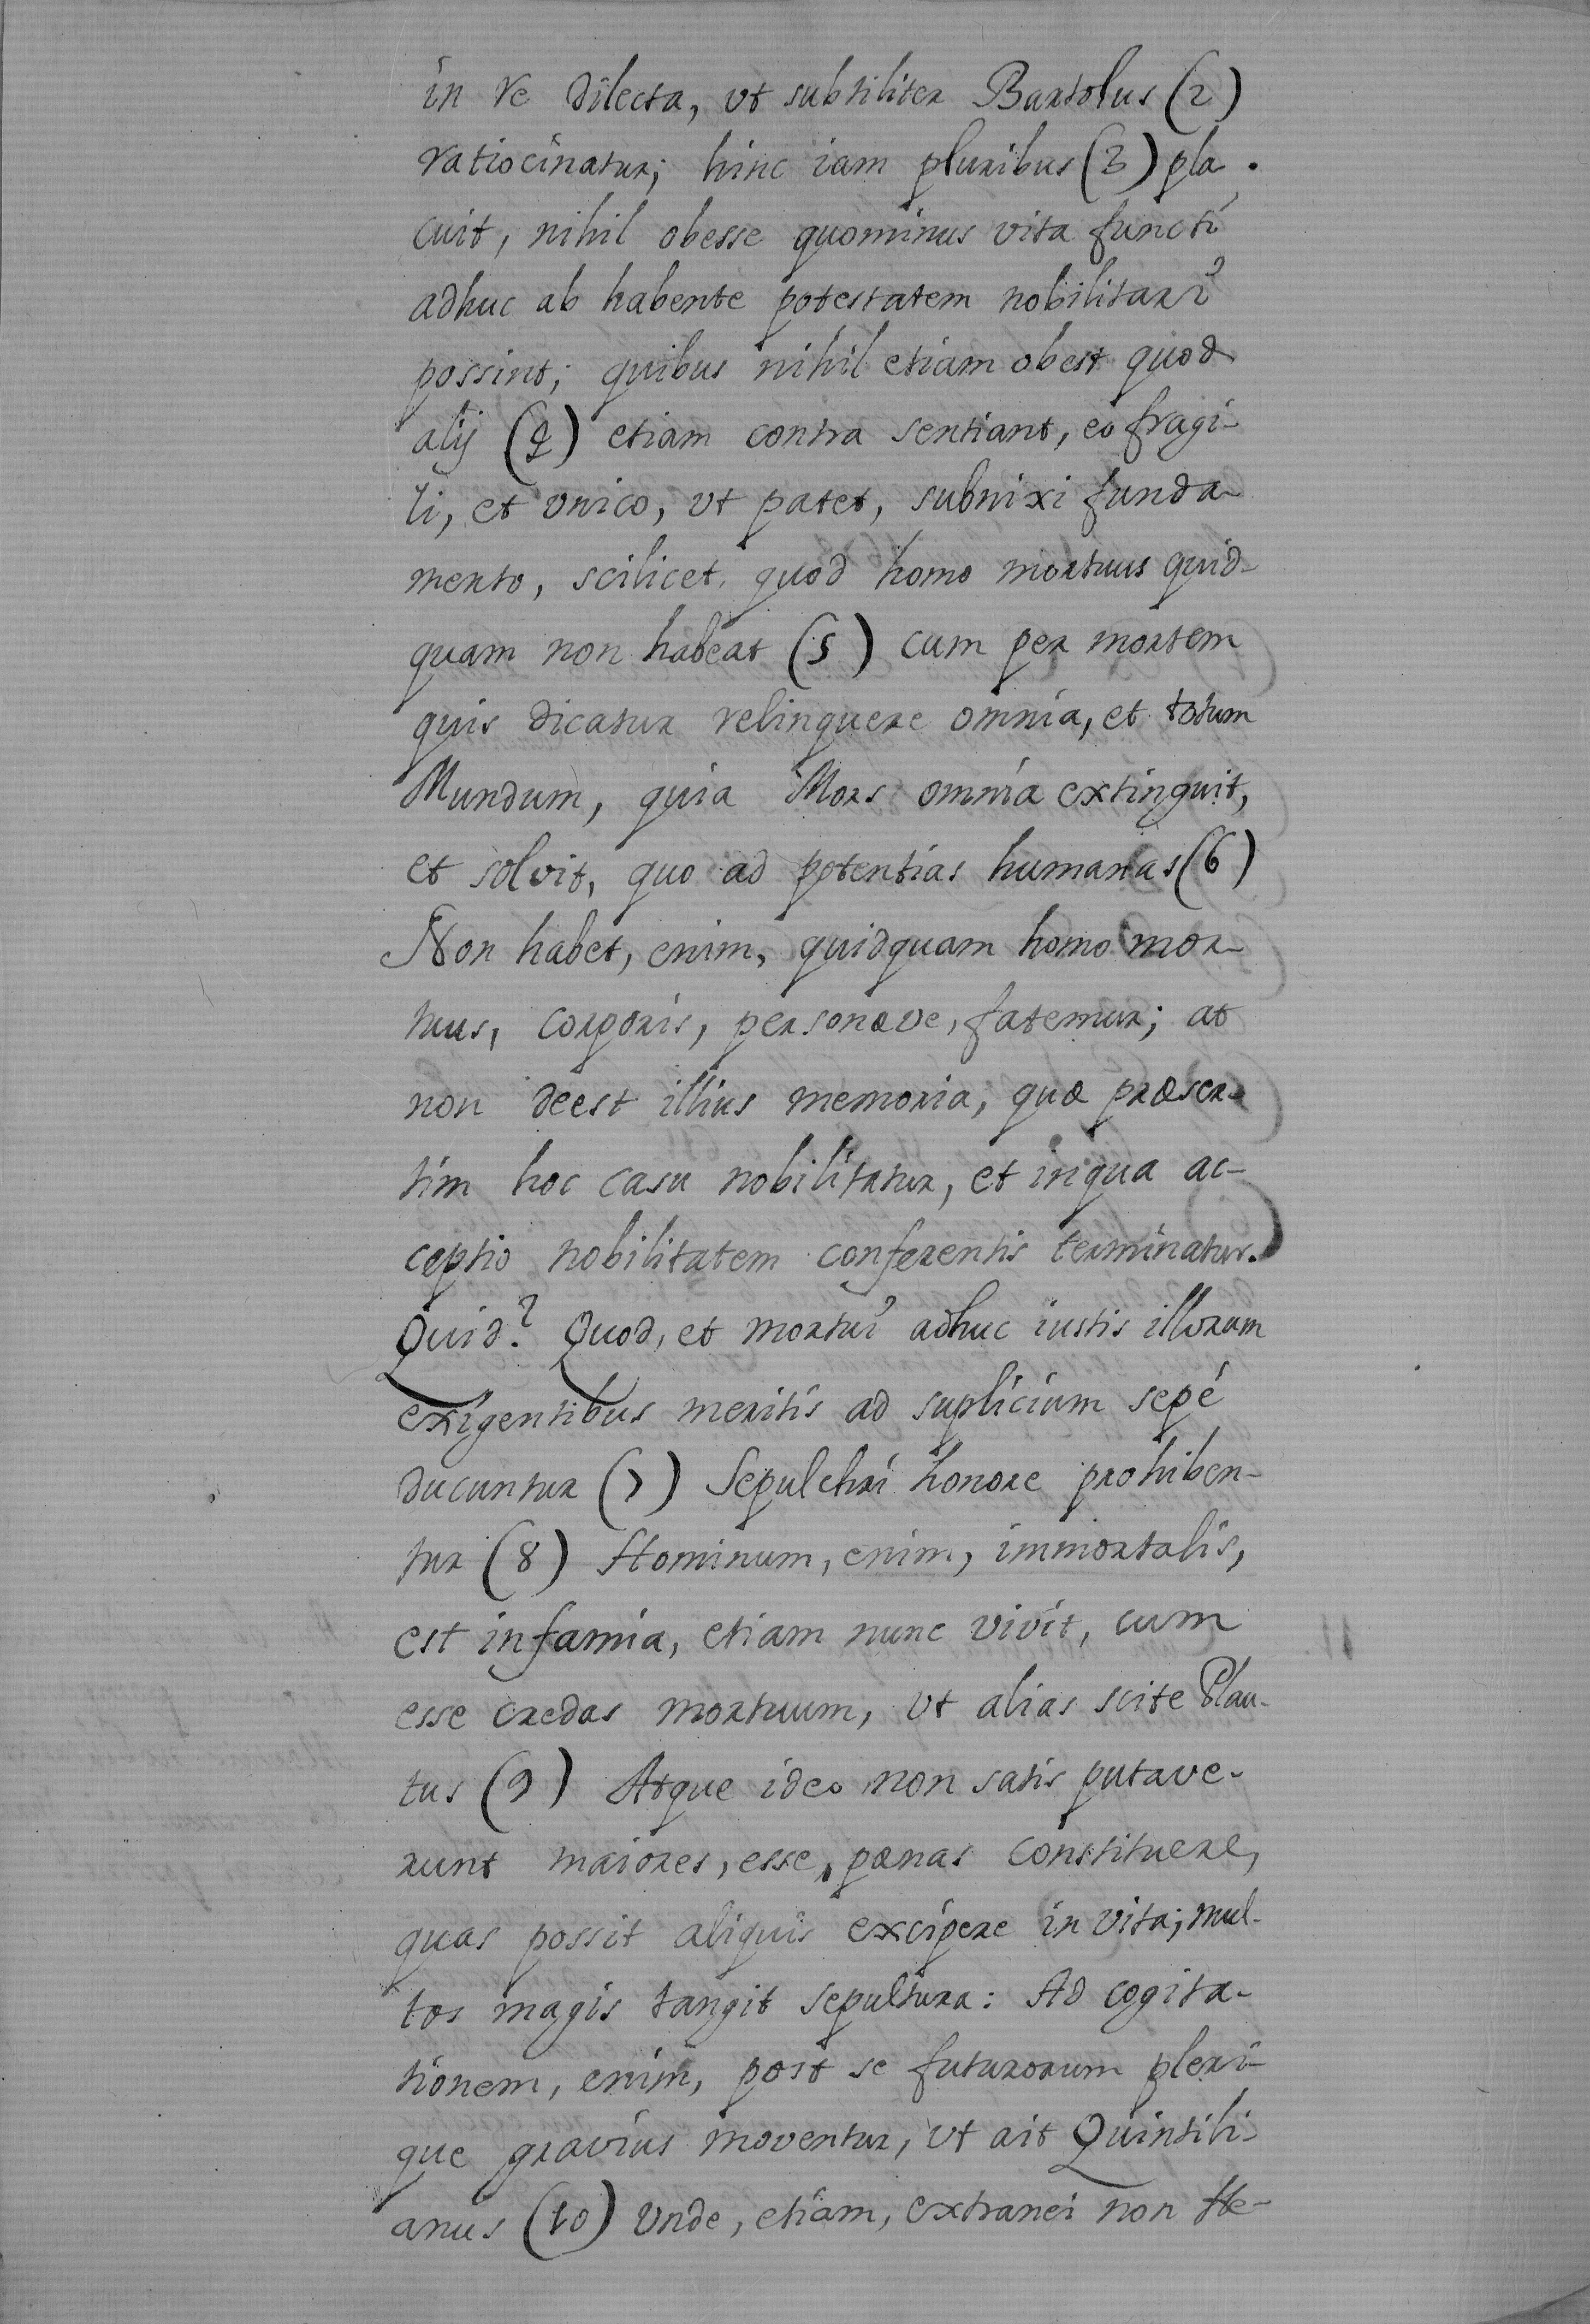 in re dilecta, vt subtiliter Bartolus (2)
ratiocinatur; hinc iam pluribus (3) pla-
cuit, nihil obesse quominus vita functi
adhuc ab habente potestatem nobilitari
possint; quibus nihil etiam obest quod
alij (4) etiam contra sentiant, eo fragi-
li, et vnico, vt patet, subnixi funda-
mento, scilicet, quod homo mortuus quid-
quam non habeat (5) cum per mortem
quis dicatur relinquere omnia, et totum
Mundum, quia Mors omnia extinguit,
et solvit, quo ad potentias humanas (6)
Non habet, enim, quidquam homo mor-
tuus, corporis, personæve, fatemur; at
non deest illius memoria, quæ præser-
tim hoc casu nobilitatur, et inqua ac-
ceptio nobilitatem conferentis terminatur.
Quid? Quod, et mortui adhuc iustis illorum
exigentibus meritis ad suplicium sepé
ducuntur (7) Sepulchri honore prohiben-
tur (8) Hominum, enim, immortalis,
est infamia, etiam nunc vivit, cum
esse credas mortuum, vt alias scite Plau-
tus (9) Atque ideo non satis putave-
runt maiores, esse, pœnas constituere,
quas possit aliquis excipere in vita; mul-
tos magis tangit sepultura: Ad cogita-
tionem, enim, post se futurorum pleri-
que gravius moventur, vt ait Quintili-
anus (10) Vnde, etiam, extranei non He-